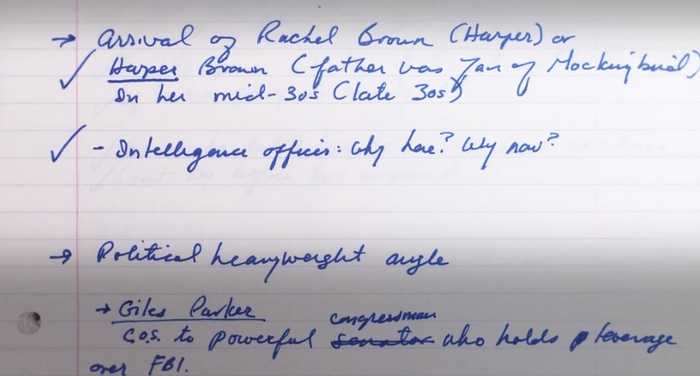 → Arrival of Rachel Brown (Harper) or
Harper Brown (father was fan of Mockingbird)
In her mid-30s (late 30s)
- Intelligence officer: Why here? Why now?
→ Political heavyweight angle
→ Giles Parker
congressman
C.O.S. to powerful senator who holds leverage
over FBI.